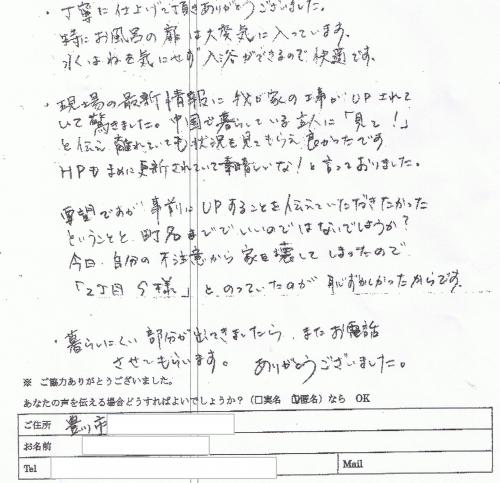 ・丁寧に仕上げて頂きありがとうございました。
特にお風呂の扉は大変気に入っています。
水はねを気にせず入浴ができるので快適です。
・現場の最新情報に我が家の工事がUPされて
いて驚きました。中国で暮らしている主人に「見て！」
と伝え離れていても状況を見てもらえ良かったです
HPもまめに更新されていて素晴しいな！と言っておりました。
要望ですが事前にUPすることを伝えていただきたかった
ということと、町名まででいいのではないでしょうか？
今回、自分の不注意から家を壊してしまったので
「2丁目 S様」とのっていたのが恥ずかしかったからです。
・暮らしにくい部分が出てきましたら、またお電話
させてもらいます。 ありがとうございました。
※ ご協力ありがとうございました。
あなたの声を伝える場合どうすればよいでしょうか？（□実名 ☑匿名）なら OK
ご住所 豊川市
お名前
Tel Mail